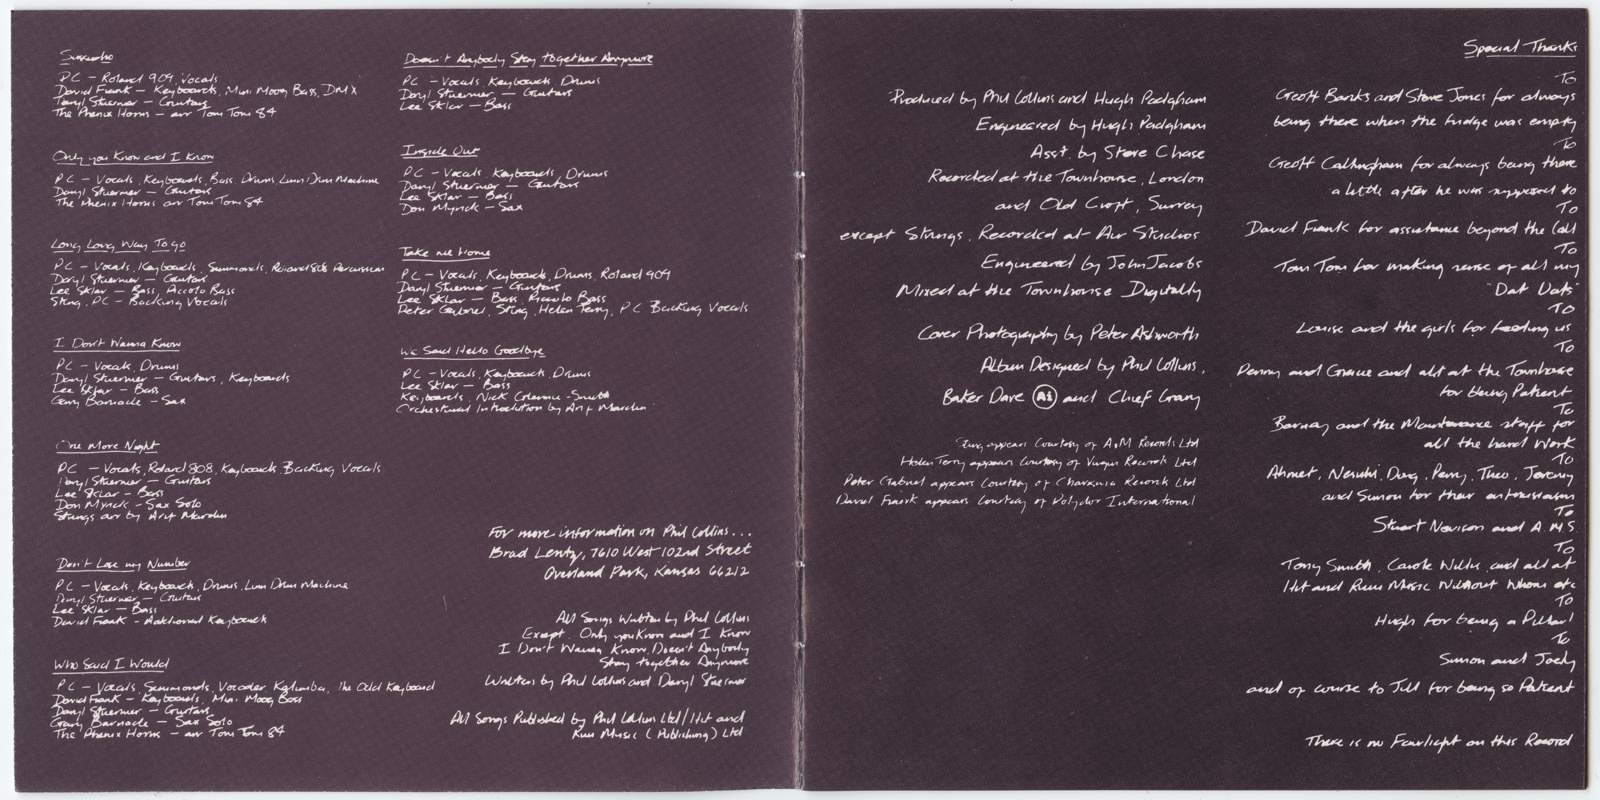 Sussudio
PC – Roland 909, Vocals
David Frank – Keyboards, Mini Moog Bass, DMX
Daryl Stuermer – Guitars
The Phenix Horns – arr Tom Tom 84
Only you Know and I Know
PC – Vocals, Keyboards, Bass, Drums, Linn Drum Machine
Daryl Stuermer – Guitars
The Phenix Horns arr Tom Tom 84
Long Long Way To go
PC – Vocals, Keyboards, Simmonds, Roland 808 Percussion
Daryl Stuermer – Guitars
Lee Sklar – Bass, Piccolo Bass
Sting, PC – Backing Vocals
I Don't Wanna Know
PC – Vocals, Drums
Daryl Stuermer – Guitars, Keyboards
Lee Sklar – Bass
Gary Barnacle – Sax
One More Night
PC – Vocals, Roland 808, Keyboards Backing Vocals
Daryl Stuermer – Guitars
Lee Sklar – Bass
Don Myrick – Sax Solo
Strings arr by Arif Mardin
Don't Lose my Number
PC – Vocals, Keyboards, Drums, Linn Drum Machine
Daryl Stuermer – Guitars
Lee Sklar – Bass
David Frank – Additional Keyboards
Who Said I Would
PC – Vocals, Simmonds, Vocoder, Kalimba, The Odd Keyboard
David Frank – Keyboards, Mini Moog Bass
Daryl Stuermer – Guitars
Gary Barnacle – Sax Solo
The Phenix Horns – arr Tom Tom 84
Doesn't Anybody Stay together Anymore
PC – Vocals, Keyboards, Drums
Daryl Stuermer – Guitars
Lee Sklar – Bass
Inside Out
PC – Vocals, Keyboards, Drums
Daryl Stuermer – Guitars
Lee Sklar – Bass
Don Myrick – Sax
Take me Home
PC – Vocals, Keyboards, Drums, Roland 909
Daryl Stuermer – Guitars
Lee Sklar – Bass, Piccolo Bass
Peter Gabriel, Sting, Helen Terry, PC Backing Vocals
We Said Hello Goodbye
PC – Vocals, Keyboards, Drums
Lee Sklar – Bass
Keyboards, Nick Glennie-Smith
Orchestral Introduction by Arif Mardin
For more information on Phil Collins...
Brad Lentz, 7610 West 102nd Street
Overland Park, Kansas 66212
All Songs Written by Phil Collins
Except. Only you Know and I Know
I Don't Wanna Know, Doesn't Anybody
Stay together Anymore
Written by Phil Collins and Daryl Stuermer
All Songs Published by Phil Collins Ltd/Hit and
Run Music (Publishing) Ltd
Produced by Phil Collins and Hugh Padgham
Engineered by Hugh Padgham
Asst. by Steve Chase
Recorded at the Townhouse, London
and Old Croft, Surrey
except Strings, Recorded at Air Studios
Engineered by John Jacobs
Mixed at the Townhouse Digitally
Cover Photography by Peter Ashworth
Album Designed by Phil Collins,
Baker Dave Ai and Chief Grany
Sting appears Courtesy of A&M Records Ltd
Helen Terry appears Courtesy of Virgin Records Ltd
Peter Gabriel appears Courtesy of Charisma Records Ltd
David Frank appears Courtesy of Polydor International
Special Thanks
To
Geoff Banks and Steve Jones for always
being there when the fridge was empty
To
Geoff Callingham for always being there
a little after he was supposed to
To
David Frank for assistance beyond the Call
To
Tom Tom for making sense of all my
"Dat Dats"
To
Louise and the girls for feeding us
To
Penny and Gracie and all at the Townhouse
for being Patient
To
Barney and the Maintenance staff for
all the hard Work
To
Ahmet, Nesuhi, Doug, Perry, Theo, Jeremy
and Simon for their enthusiasm
To
Stuart Nevison and A.M.S
To
Tony Smith, Carole Willis, and all at
Hit and Run Music Without Whom etc
To
Hugh for being a Pillar!
To
Simon and Joely
and of course to Jill for being so Patient
There is no Fairlight on this Record